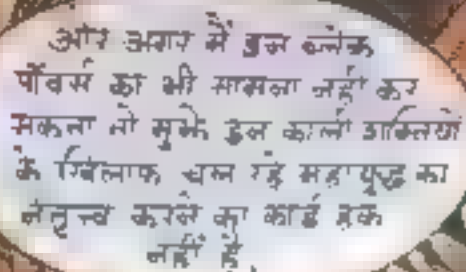 और अगर मैं इन ब्लैक
पॉवर्स का भी सामना नहीं कर
सकता तो मुझे इन काली शक्तियों
के खिलाफ चल रहे महायुद्ध का
नेतृत्व करने का कोई हक
नहीं है